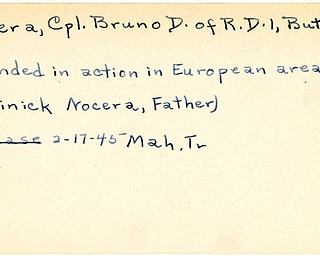 era, Cpl. Bruno D. of R.D.1, But
nded in action in European area
inick Nocera, Father)
ease 2-17-45 Mah. Tr